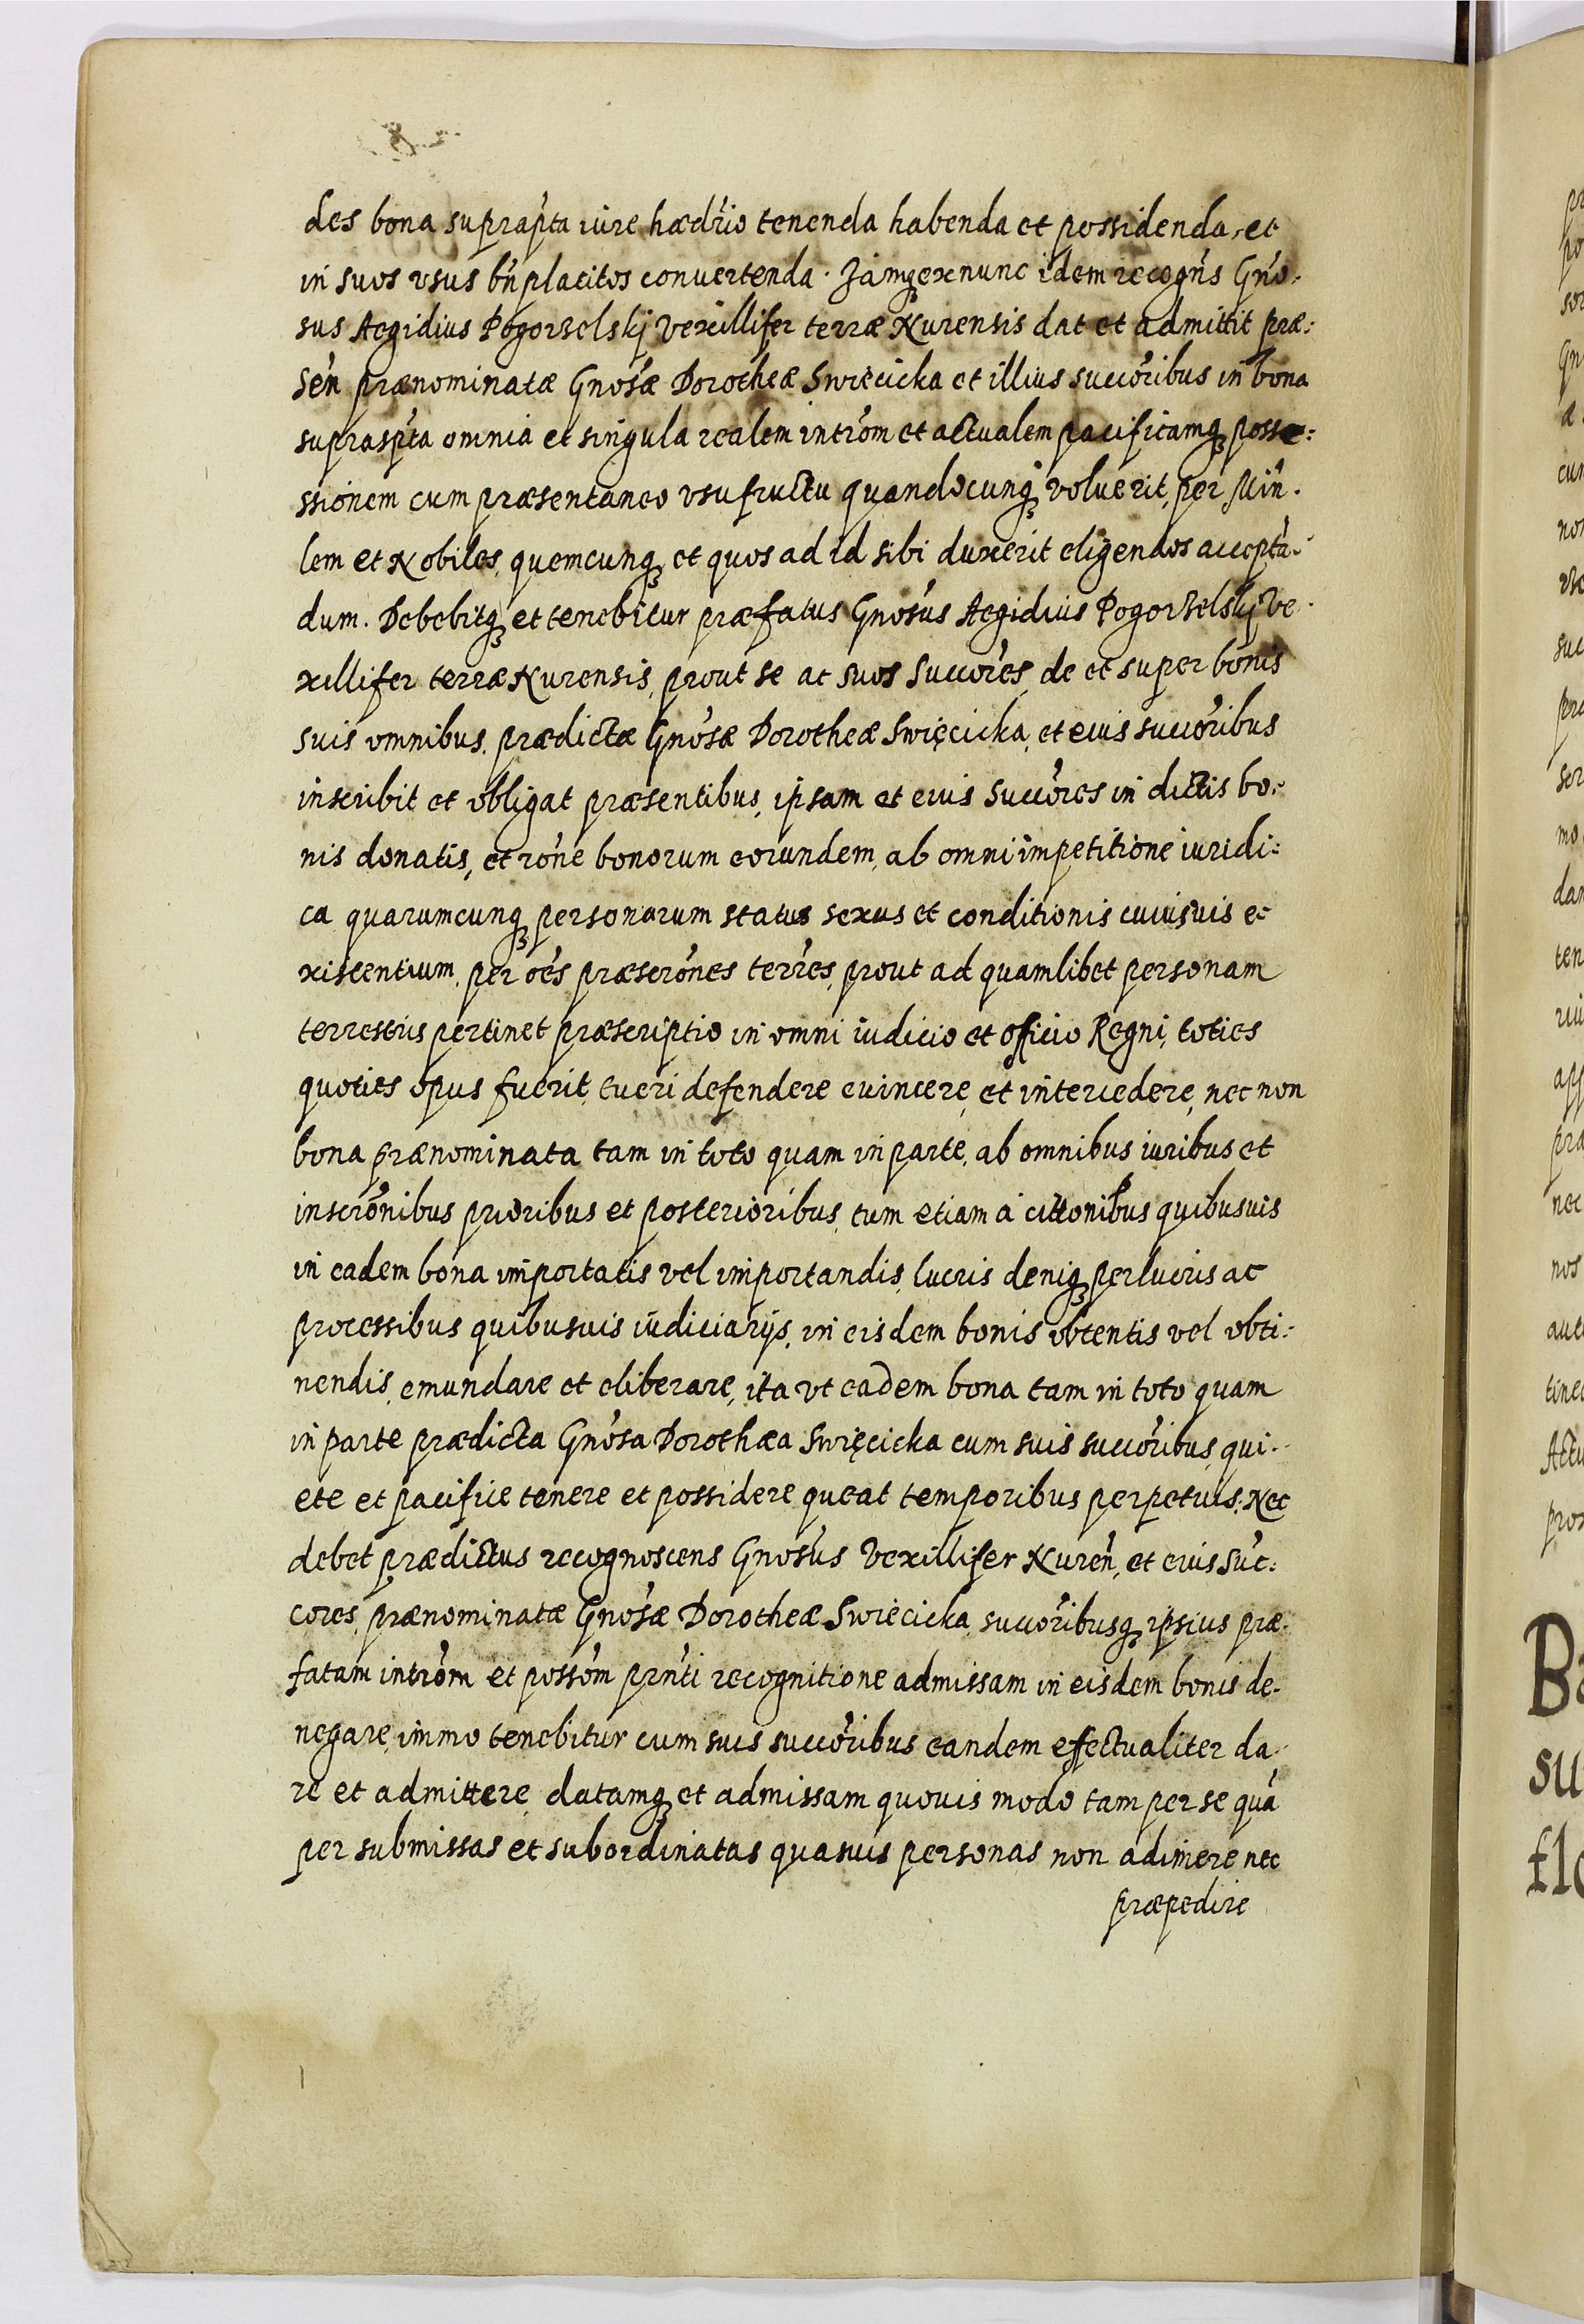 des bona suprap̃ta iure hædr̃io tenenda habenda et possidenda, et
in suos vsus bñplacitos conuertenda. Jamq̨ ex nunc idem recogñs Gño.
sus Aegidius Pogorzelskj Vexillifer terræ Nurensis dat et admittit præ:
señ prænominatæ Gnos̃æ Dorotheæ Swięcicka et illius succor̃ibus in bona
suprasp̃ta omnia et singula realem intro᷈m et actualem pacificamq̨ posse:
ssionem cum præsentaneo vsufructu quandocunq̨ voluerit, per Miñ.
lem et Nobiles, quemcunq̨ et quos ad id sibi duxerit eligendos acceptã.
dum. Debebitq̨ et tenebitur præfatus Gnos̃us Aegidius Pogorzelskj Ve.
xillifer terræ Nurensis, prout se ac suos succor̃es, de et super bonis
suis omnibus, prædictæ Gnos̃æ Dorotheæ Swięcicka, et eius succor̃ibus
inscribit et obligat præsentibus, ipsam et eius succor̃es in dictis bo.
nis donatis, et rõne bonorum eorundem, ab omni impetitione iuridi:
ca quarumcunq̨ personarum status sexus et conditionis cuiusuis e-
xistentium, per oẽs præscrõnes terr̃es, prout ad quamlibet personam
terrestris pertinet præscriptio in omni iudicio et officio Regni, toties
quoties opus fuerit, tueri defendere euincere, et intercedere, nec non
bona prænominata tam in toto quam in parte, ab omnibus iuribus et
inscrõnibus prioribus et posterioribus, tum etiam à cittonibus quibusuis
in eadem bona importatis vel importandis, lucris deniq̨ perlucris ac
processibus quibusuis iudiciarijs, in eisdem bonis obtentis vel obti:
nendis, emundare et eliberare, ita vt eadem bona tam in toto quam
in parte prædicta Gnos̃a Dorothæa Swięcicka cum suis succor̃ibus, qui.
ete et pacifice tenere et possidere queat temporibus perpetuis. Nec
debet prædictus recognoscens Gnos̃us Vexillifer Nureñ, et eius suc:
cores, prænominatæ Gnos̃æ Dorotheæ Swięcicka, succor̃ibusq̨ ipsius præ.
fatam intro᷈m et posso᷈m prñti recognitione admissam in eisdem bonis de.
negare, immo tenebitur cum suis succor̃ibus eandem effectualiter da.
re et admittere, datamq̨ et admissam quouis modo tam per se quã
per submissas et subordinatas quasuis personas non adimere nec
præpedire